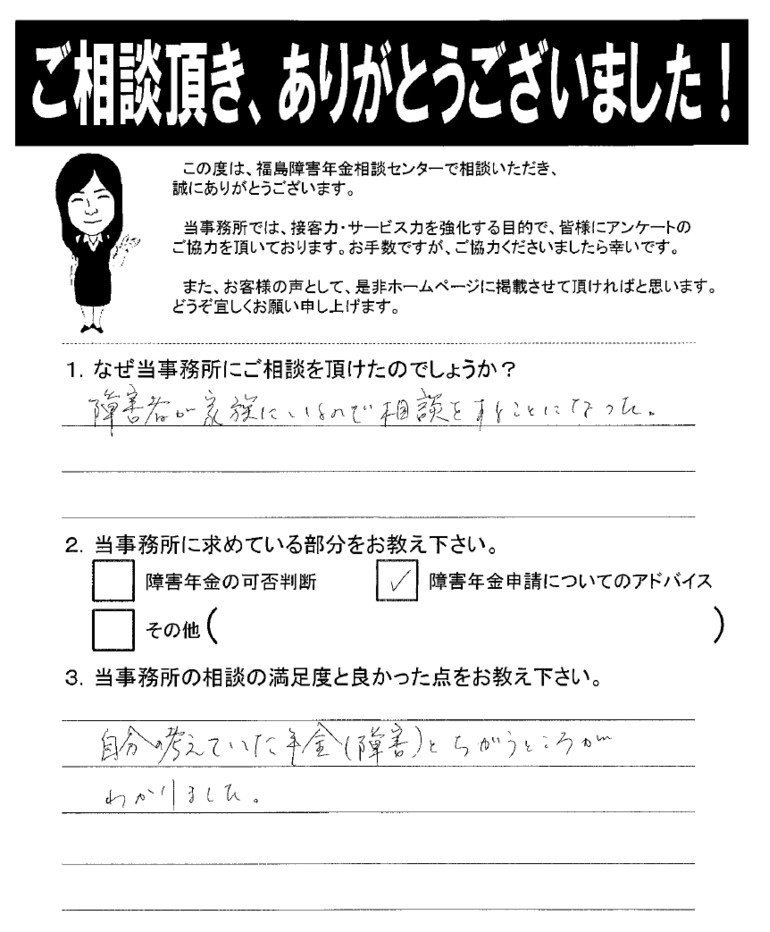 ご相談頂き、ありがとうございました！
この度は、福島障害年金相談センターで相談いただき、
誠にありがとうございます。
当事務所では、接客力・サービス力を強化する目的で、皆様にアンケートの
ご協力を頂いております。お手数ですが、ご協力くださいましたら幸いです。
また、お客様の声として、是非ホームページに掲載させて頂ければと思います。
どうぞ宜しくお願い申し上げます。
1. なぜ当事務所にご相談を頂けたのでしょうか？
障害者が家族にいるので相談をすることになった。
2. 当事務所に求めている部分をお教え下さい。
障害年金の可否判断 ✓ 障害年金申請についてのアドバイス
その他（ ）
3. 当事務所の相談の満足度と良かった点をお教え下さい。
自分の考えていた年金(障害)とちがうところが
わかりました。